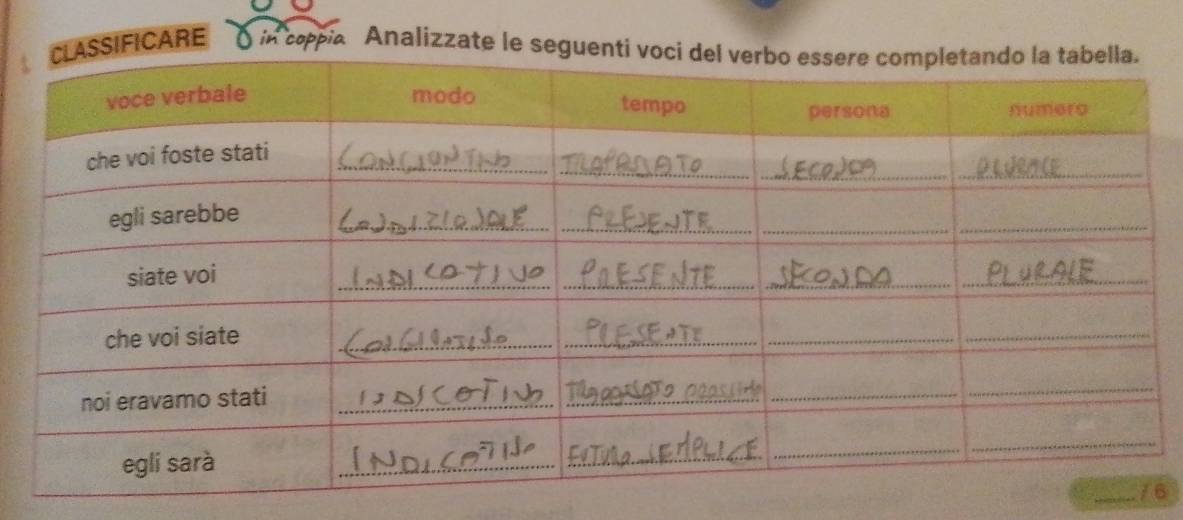 CLASSIFICARE in coppia Analizzate le seguenti voci del verbo essere completando la tabella.
voce verbale modo tempo persona numero
che voi foste stati CONGIUNTIVO TRAPASSATO SECONDA PLURALE
egli sarebbe CONDIZIONALE PRESENTE
siate voi INDICATIVO PRESENTE SECONDA PLURALE
che voi siate CONGIUNTIVO PRESENTE
noi eravamo stati INDICATIVO TRAPASSATO PROSSIMO
egli sarà INDICATIVO FUTURO SEMPLICE
/ 6